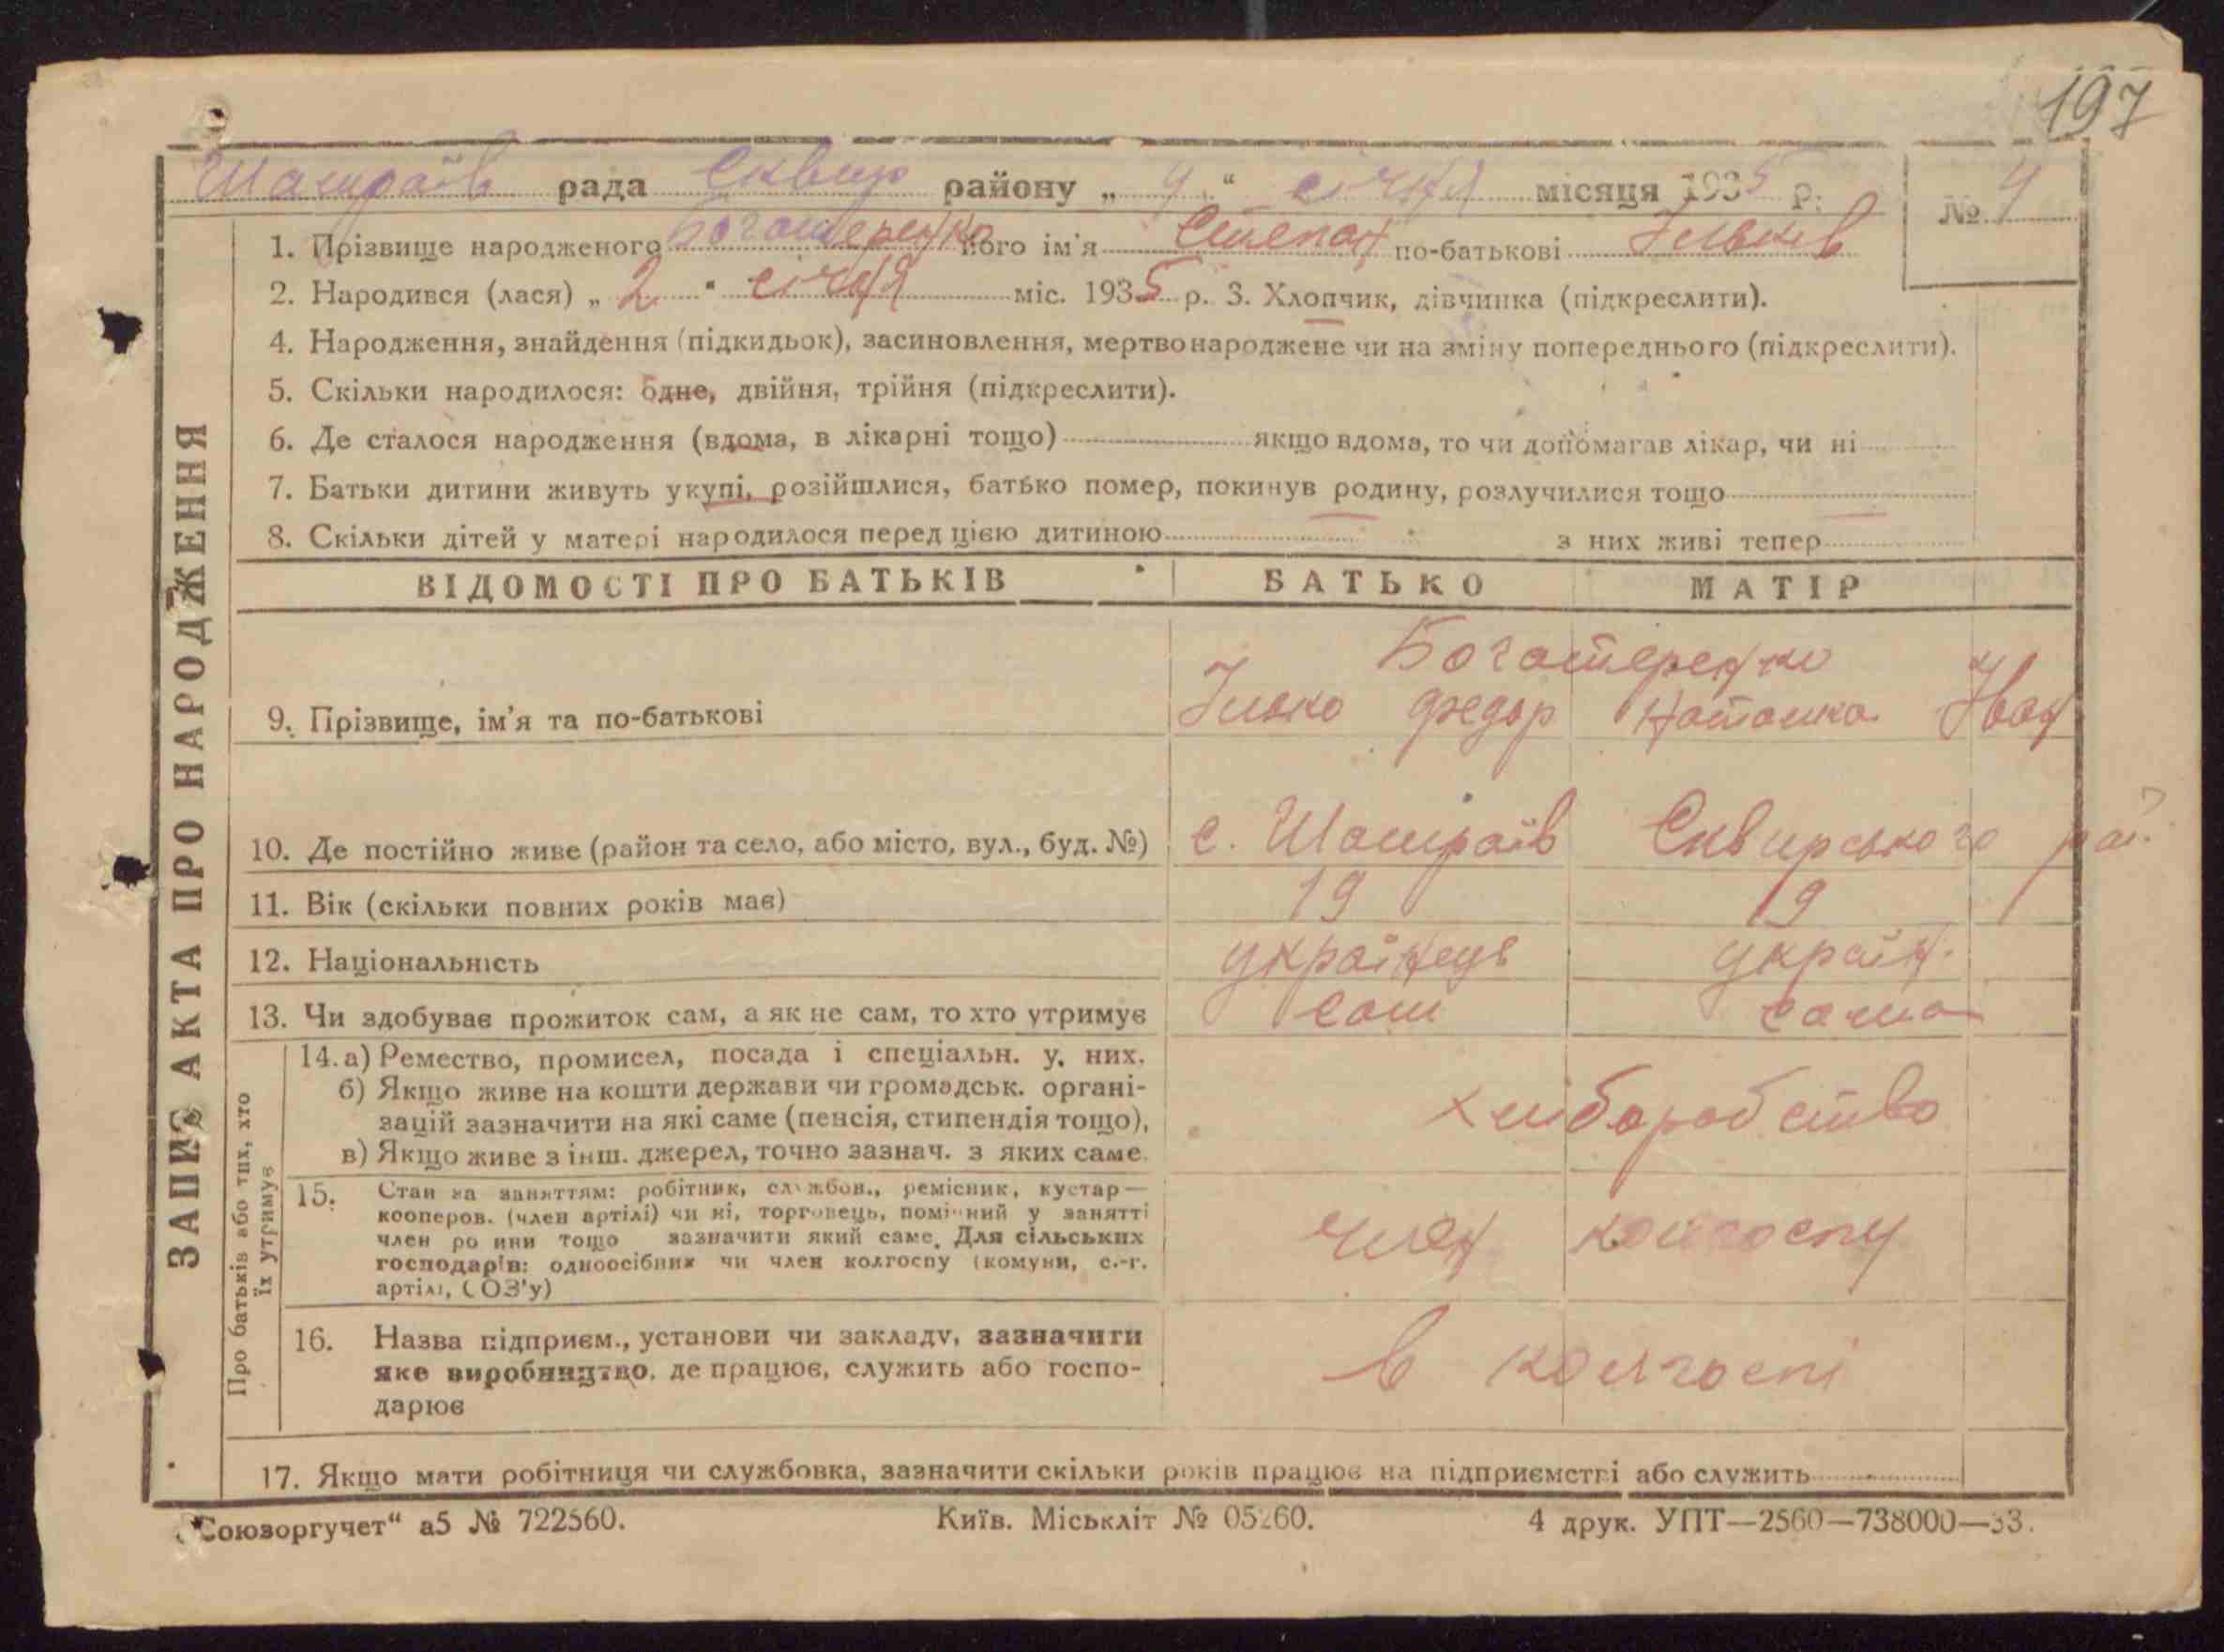 197
Шамраїв рада Сквир району „ 4 " січня місяця 1935 р. № 4
1. Прізвище народженого Богатеренко його ім'я Степан по-батькові Ільків
2. Народився (лася) „ 2 " січня міс. 1935 р. 3. Хлопчик, дівчинка (підкреслити).
4. Народження, знайдення (підкидьок), засиновлення, мертвонароджене чи на зміну попереднього (підкреслити).
5. Скільки народилося: одне, двійня, трійня (підкреслити).
6. Де сталося народження (вдома, в лікарні тощо) якщо вдома, то чи допомагав лікар, чи ні
7. Батьки дитини живуть укупі, розійшлися, батько помер, покинув родину, розлучилися тощо
8. Скільки дітей у матері народилося перед цією дитиною — з них живі тепер —
ЗАПИС АКТА ПРО НАРОДЖЕННЯ
ВІДОМОСТІ ПРО БАТЬКІВ БАТЬКО МАТІР
Богатеренко
9. Прізвище, ім'я та по-батькові Ілько Федор Наталка Іван
10. Де постійно живе (район та село, або місто, вул., буд. №) с. Шамраїв Сквирського рай.
11. Вік (скільки повних років має) 19 19
12. Національність українець україн.
13. Чи здобуває прожиток сам, а як не сам, то хто утримує сам сама
Про батьків або тих, хто їх утримує
14. а) Ремество, промисел, посада і спеціальн. у. них.
б) Якщо живе на кошти держави чи громадськ. органі-
зацій зазначити на які саме (пенсія, стипендія тощо), хліборобство
в) Якщо живе з інш. джерел, точно зазнач. з яких саме.
15. Стан за заняттям: робітник, службов., ремісник, кустар—
кооперов. (член артілі) чи ні, торговець, помічний у занятті
член родини тощо зазначити який саме. Для сільських член колгоспу
господарів: одноосібник чи член колгоспу (комуни, с.-г.
артілі, СОЗ'у)
16. Назва підприєм., установи чи закладу, зазначити
яке виробництво, де працює, служить або госпо- в колгоспі
дарює
17. Якщо мати робітниця чи службовка, зазначити скільки років працює на підприємстві або служить
„Союзоргучет" а5 № 722560. Київ. Міськліт № 05260. 4 друк. УПТ—2560—738000—33.